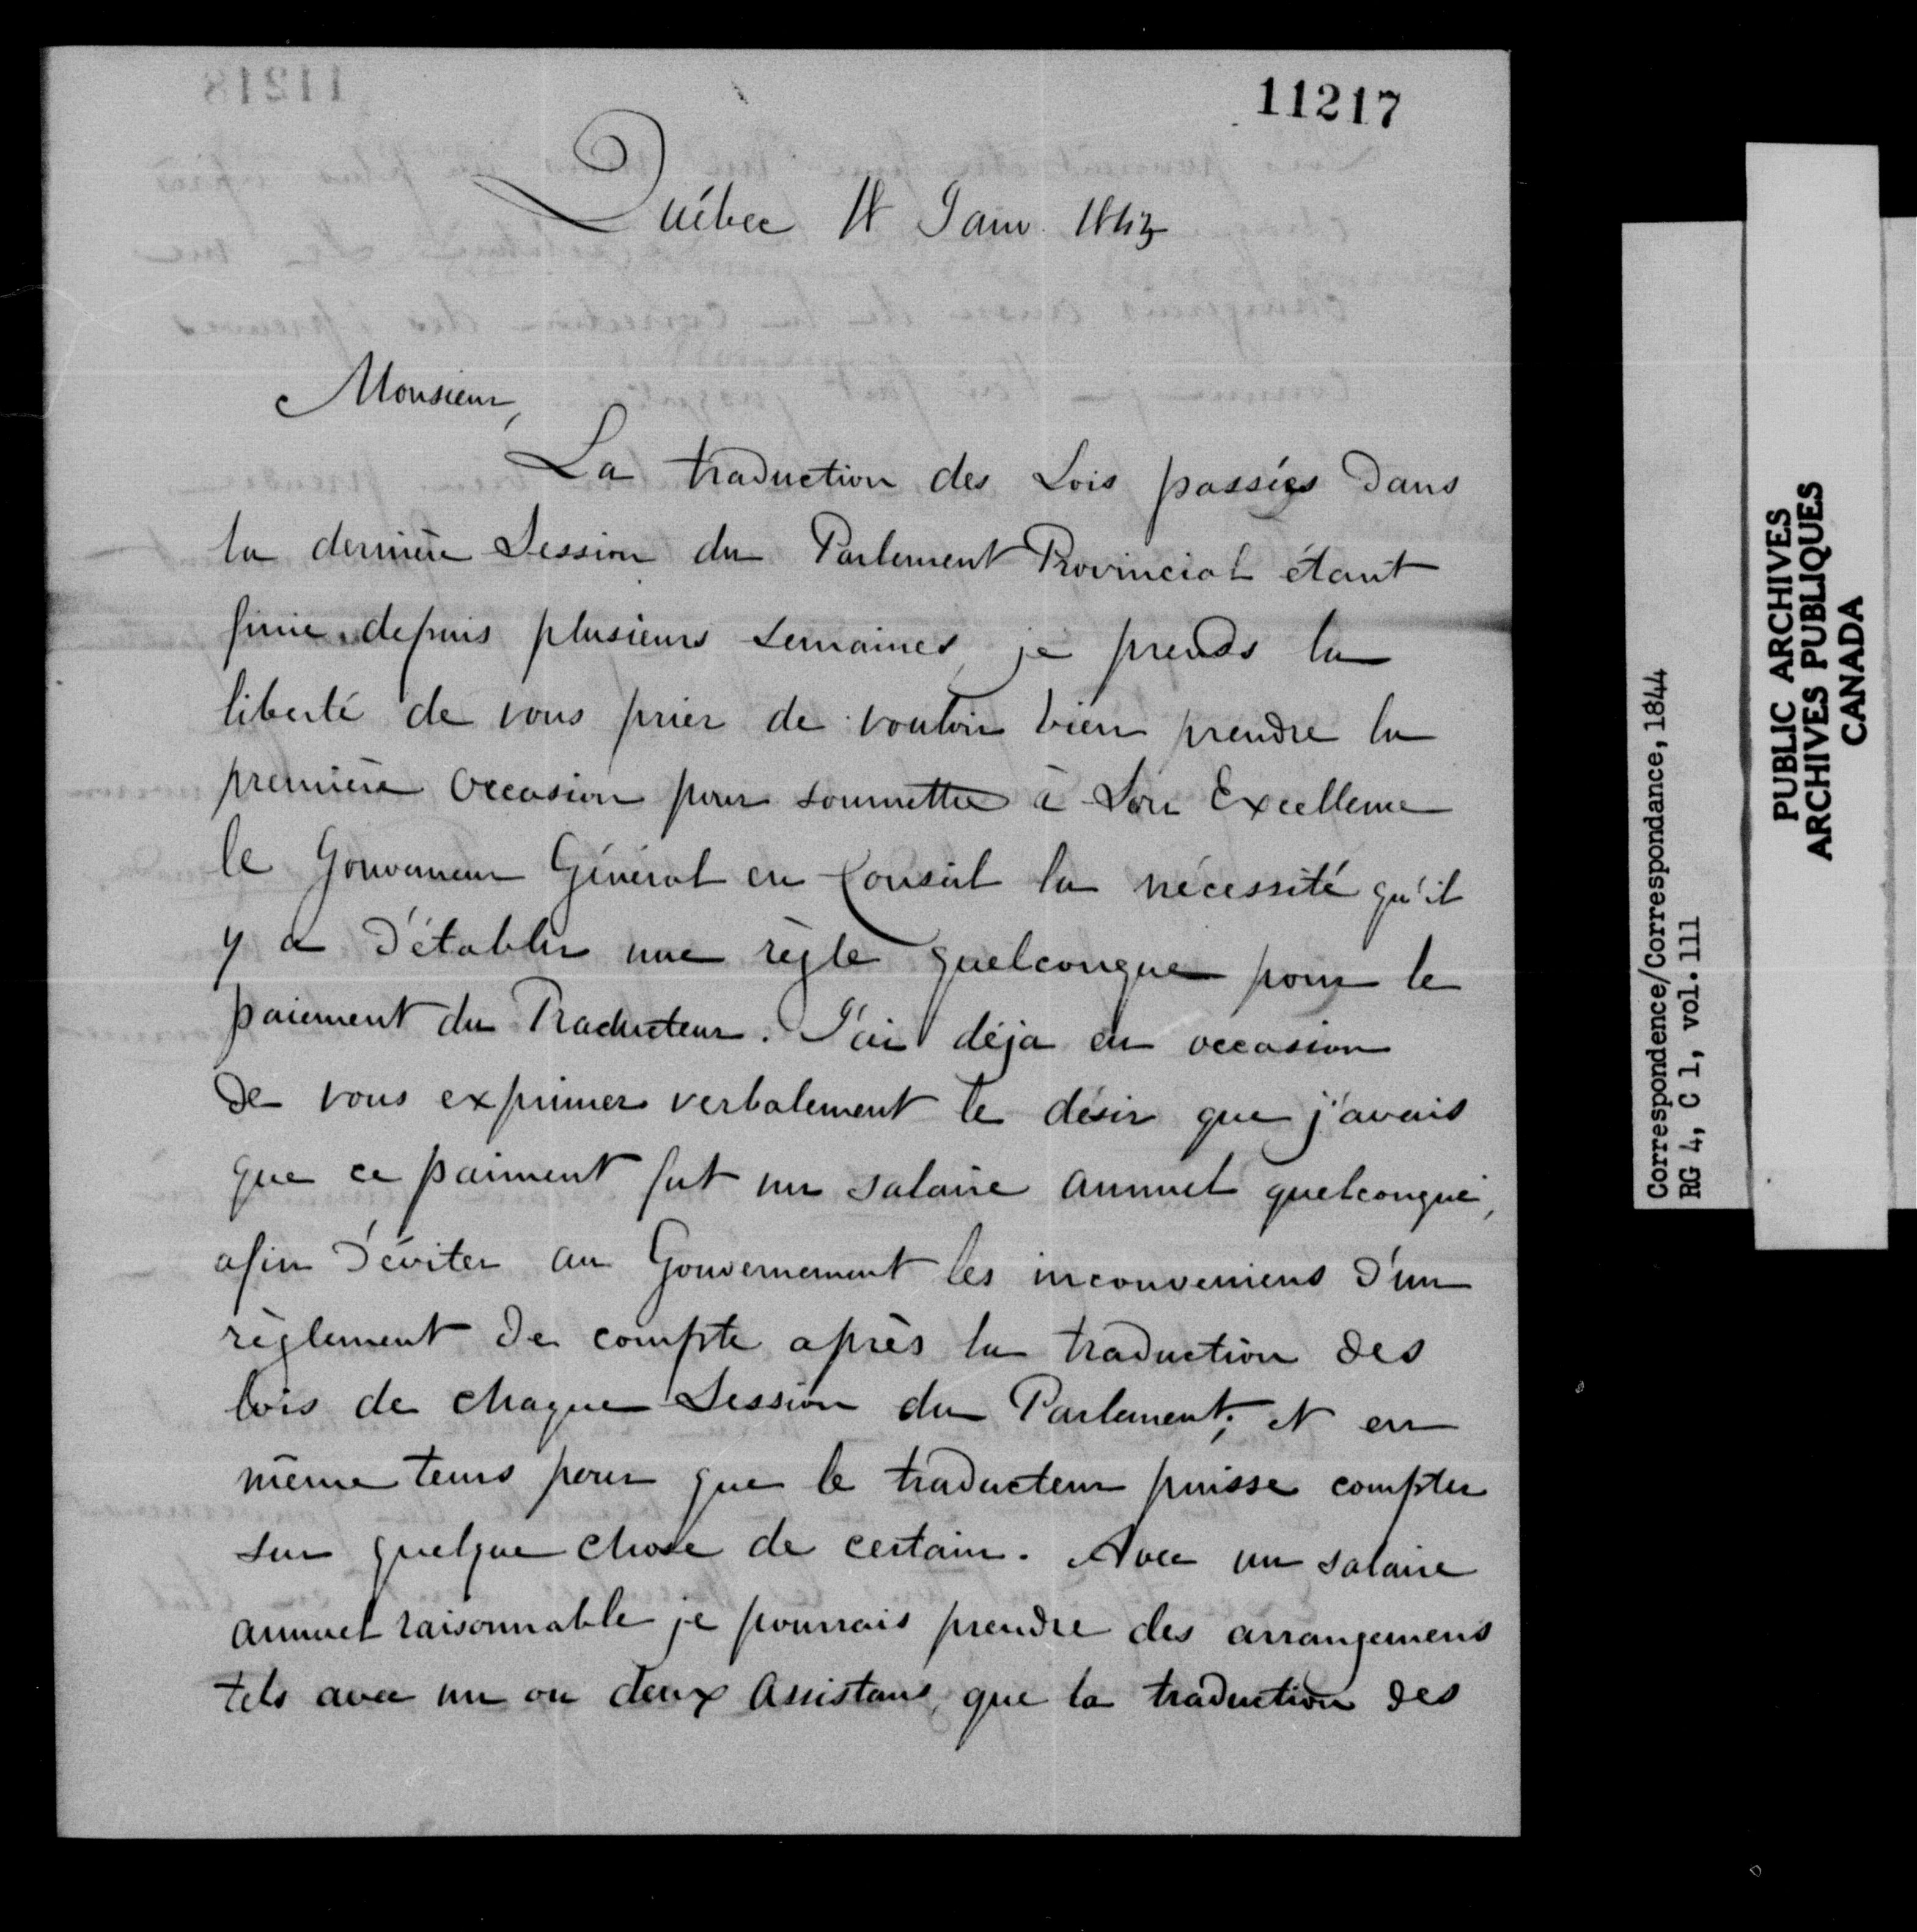 11217
Québec 18 Janv. 1843
Monsieur,
La traduction des Lois passées dans
la dernière Session du Parlement Provincial étant
finie depuis plusieurs semaines, je prends la
liberté de vous prier de vouloir bien prendre la
première occasion pour soumettre à Son Excellence
le Gouverneur Général en Conseil la nécessité qu'il
y a d'établir une règle quelconque pour le
paiement du Traducteur. J'ai déja eu occasion
de vous exprimer verbalement le désir que j'avais
que ce paiment fut un salaire annuel quelconque,
afin d'éviter au Gouvernement les inconveniens d'un
règlement de compte après la traduction des
lois de chaque Session du Parlement; et en
même tems pour que le traducteur puisse compter
sur quelque chose de certain. Avec un salaire
annuel raisonnable je pourrais prendre des arrangemens
tels avec un ou deux assistans, que la traduction des
Correspondence/Correspondance, 1844
RG 4, C 1, vol.111
PUBLIC ARCHIVES
ARCHIVES PUBLIQUES
CANADA